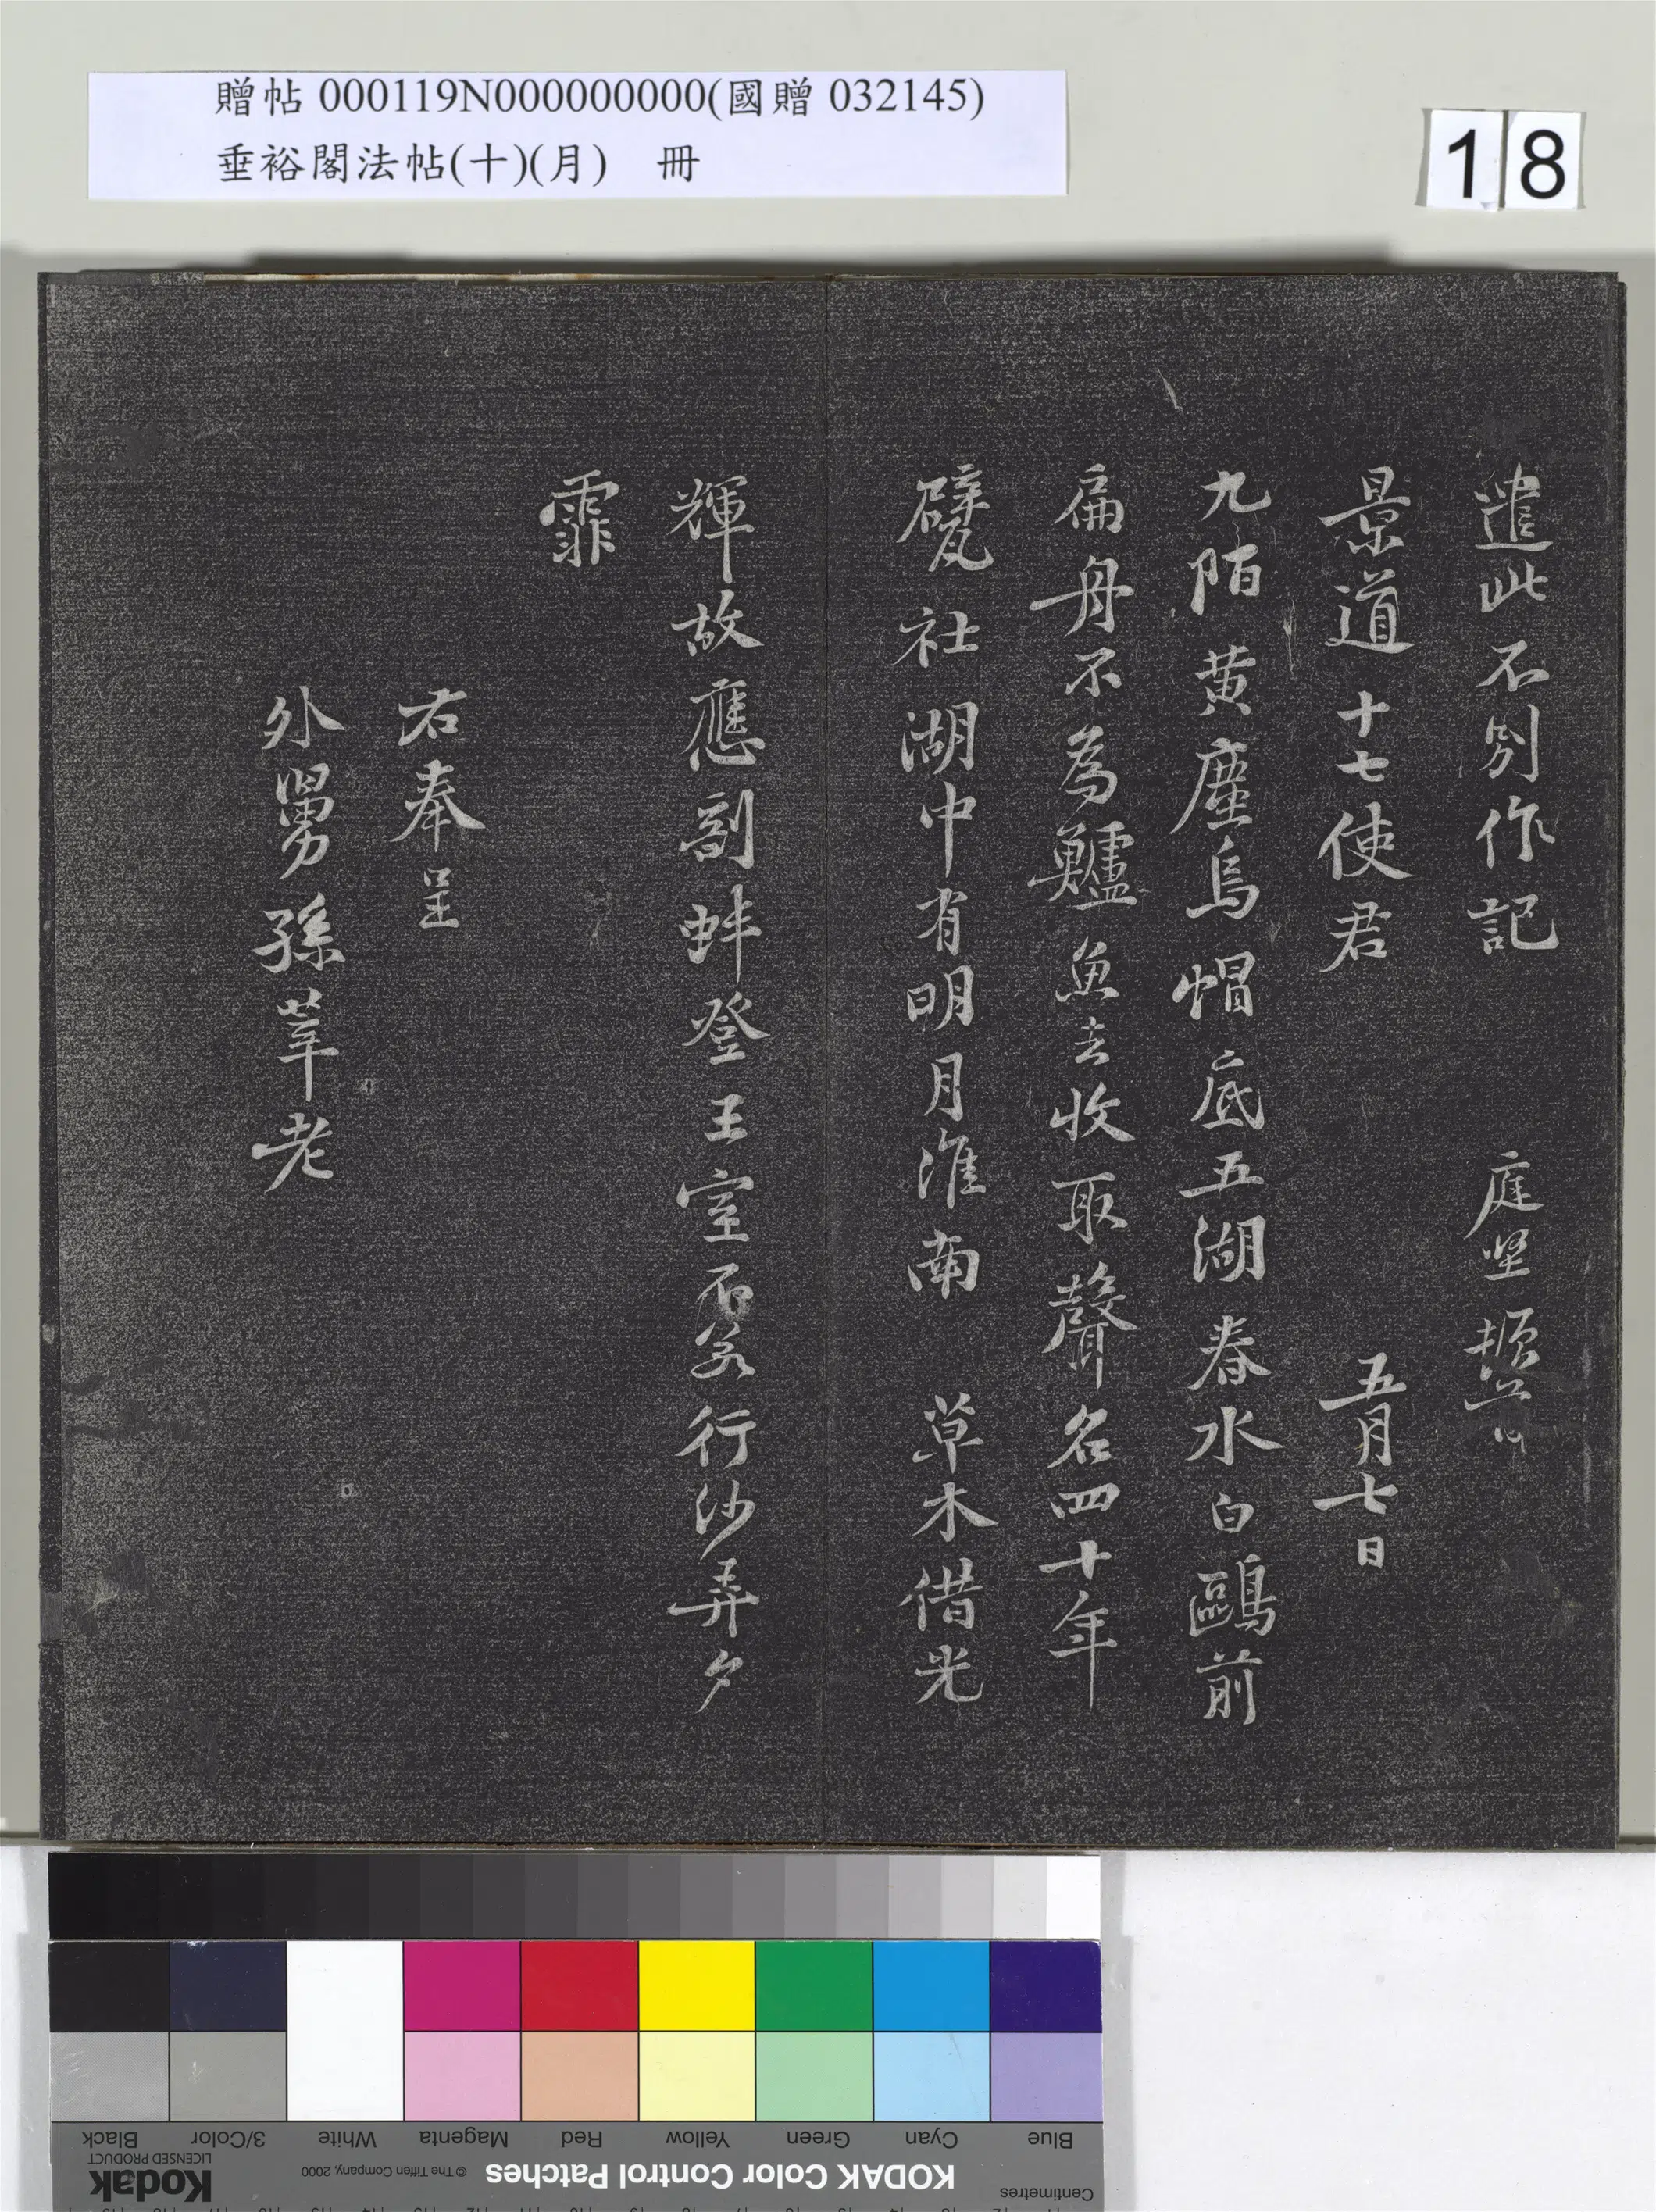 贈帖 000119N000000000(國贈 032145)
垂裕閣法帖(十)(月) 冊
18
遣此不別作記 庭堅頓首
景道十七使君 五月七日
九陌黄塵烏帽底五湖春水白鷗前
扁舟不為鱸魚去收取聲名四十年
甓社湖中有明月淮南草木借光
輝故應剖蚌登王室不若行沙弄夕
霏
右奉呈
外舅孫莘老
Centimetres
KODAK Color Control Patches
© The Tiffen Company, 2000
Kodak
LICENSED PRODUCT
Blue Cyan Green Yellow Red Magenta White 3/Color Black